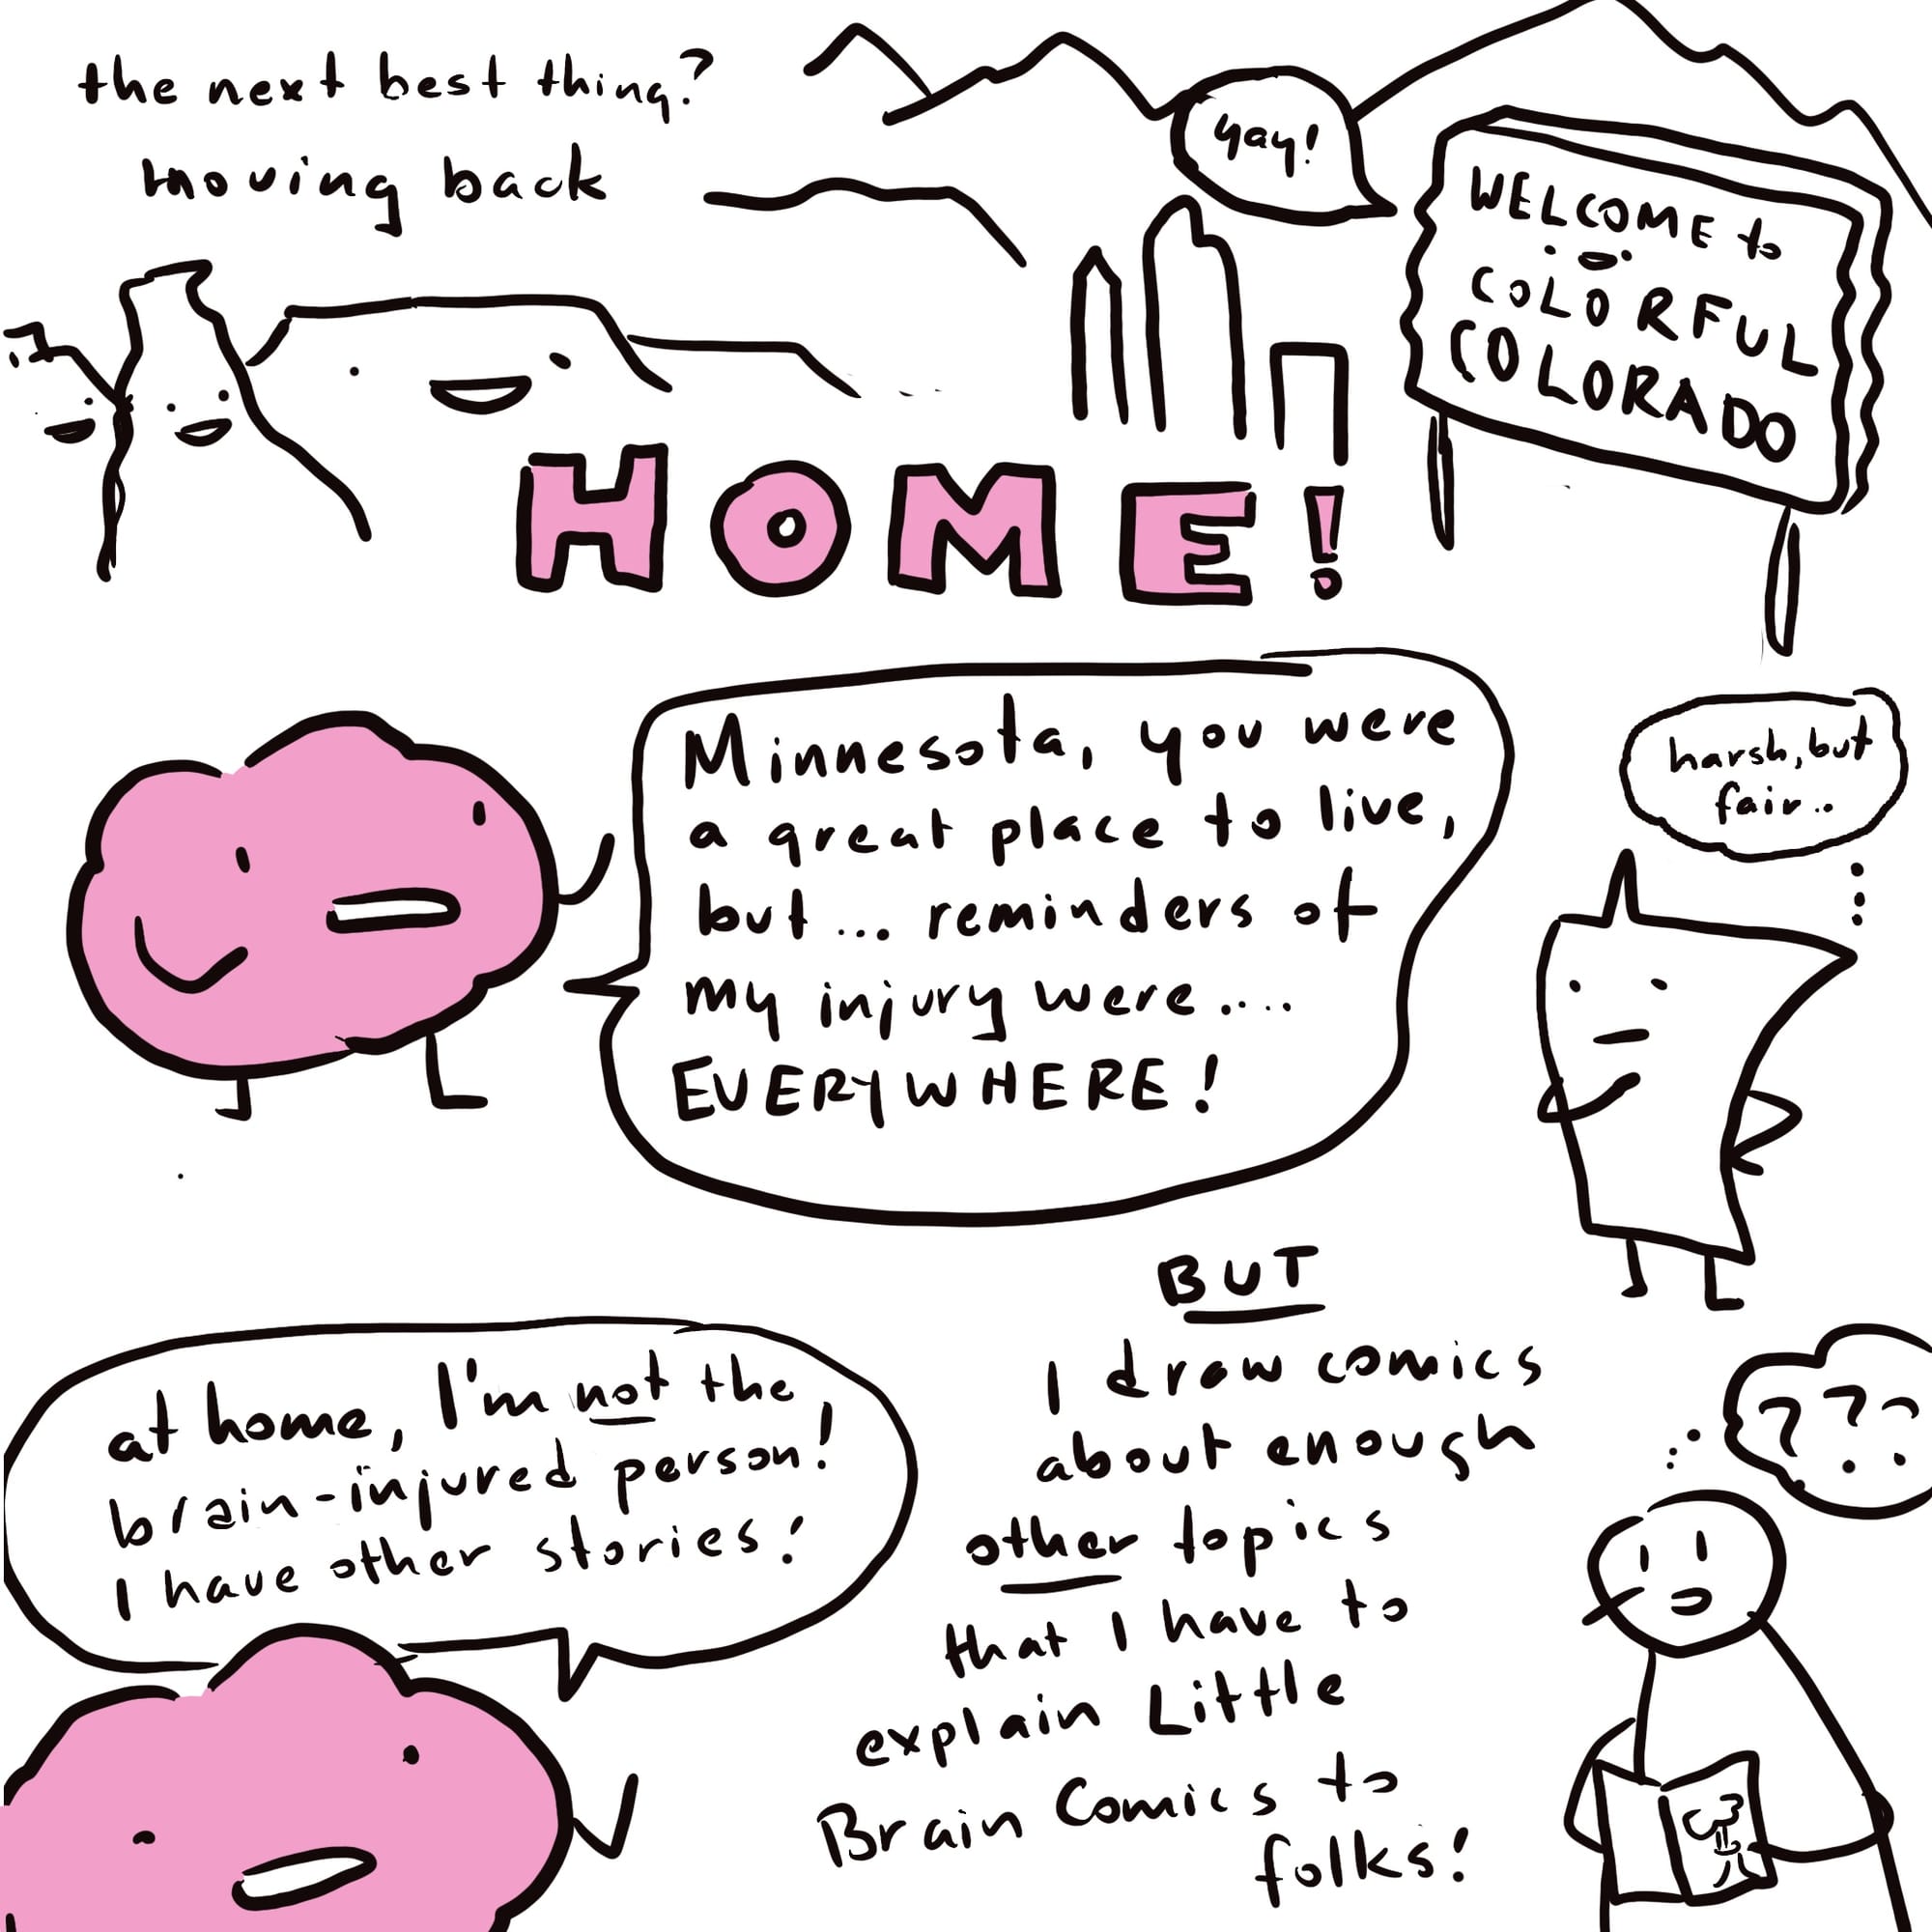 the next best thing?
moving back
yay!
WELCOME to
COLORFUL
COLORADO
HOME!
Minnesota, you were
a great place to live,
but... reminders of
my injury were....
EVERYWHERE!
harsh, but
fair..
at home, I'm not the
brain-injured person!
I have other stories!
BUT
I draw comics
about enough
other topics
that I have to
explain Little
Brain Comics to
folks!
???